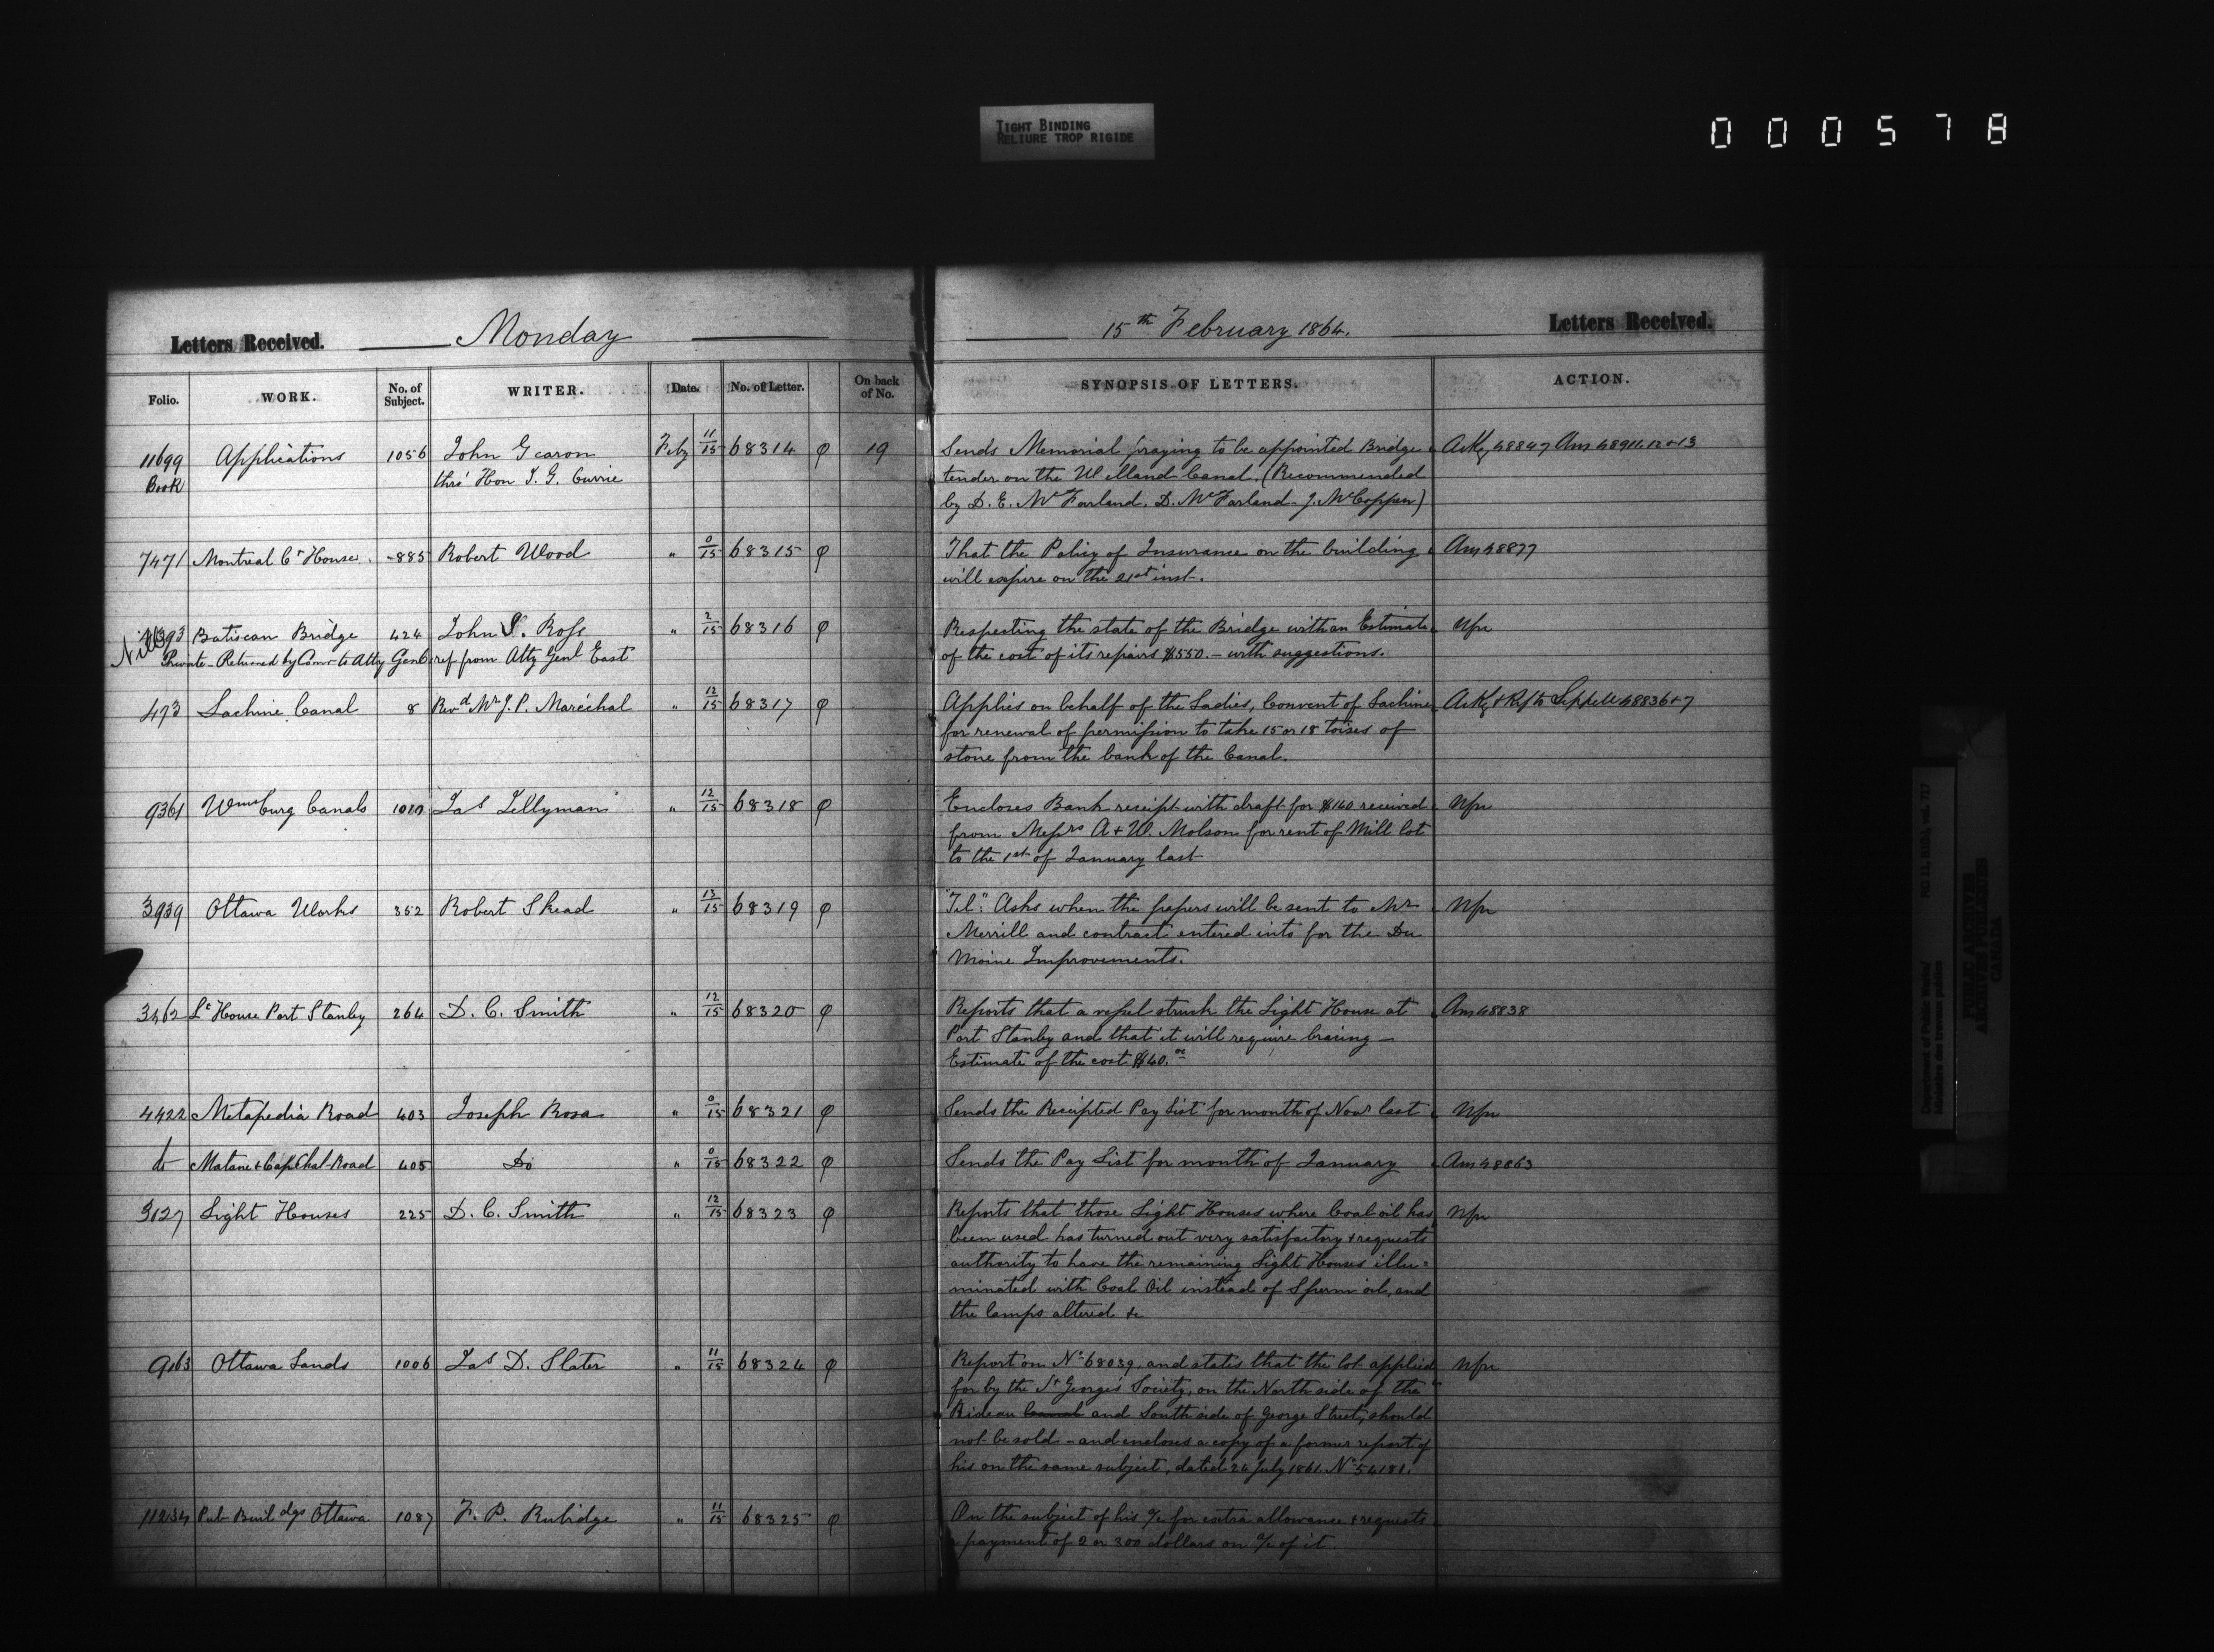 TIGHT BINDING
RELIURE TROP RIGIDE
000578
Letters Received. Monday
15th February 1864. Letters Received.
Folio. WORK. No. of Subject. WRITER. Date. No. of Letter. On back of No. SYNOPSIS OF LETTERS. ACTION.
11699 Applications 1056 John Gearon Feby 11/15 68314 φ 19 Sends Memorial praying to be appointed Bridge Ackg 48847 Ans 48911.12+13
Book thro' Hon J. G. Currie tender on the Welland Canal. (Recommended
by D. E. McFarland. D. McFarland. J. McCoppen)
7471 Montreal Ct House. 885 Robert Wood " 0/15 68315 φ That the Policy of Insurance on the building Ans 48877
will expire on the 21st inst.
Batiscan Bridge 424 John S. Ross " 2/15 68316 φ Respecting the state of the Bridge with an Estimate Nfn
Nil Private - Returned by Comr to Atty Genl ref from Atty Genl East of the cost of its repairs $550. - with suggestions.
473 Lachine Canal 8 Revd Mr J. P. Maréchal " 12/15 68317 φ Applies on behalf of the Ladies, Convent of Lachine Ackg + Ref to Sippell 48836+7
for renewal of permission to take 15 or 18 toises of
stone from the bank of the Canal.
9361 Wmsburg Canals 1010 Jas Tillyman " 12/15 68318 φ Encloses Bank receipt with draft for $160 received Nfn
from Messrs A + W. Molson for rent of Mill lot
to the 1st of January last
3939 Ottawa Works 352 Robert Skead " 13/15 68319 φ "Tel": Asks when the papers will be sent to Mr Nfn
Merrill and contract entered into for the Du
Moine Improvements.
3462 Lt House Port Stanley 264 D. C. Smith " 12/15 68320 φ Reports that a vessel struck the Light House at Ans 48838
Port Stanley and that it will require bracing -
Estimate of the cost $40.00
4422 Metapedia Road 403 Joseph Rosa " 0/15 68321 φ Sends the Receipted Pay List for month of Novr last Nfn
do Matane & Cap Chat Road 405 Do " 0/15 68322 φ Sends the Pay List for month of January Ans 48863
3127 Light Houses 225 D. C. Smith " 12/15 68323 φ Reports that those Light Houses where Coal oil has Nfn
been used has turned out very satisfactory + requests
authority to have the remaining Light Houses illu=
minated with Coal Oil instead of Sperm oil, and
the lamps altered &c
9163 Ottawa Lands 1006 Jas D. Slater " 11/15 68324 φ Report on No 68039, and states that the lot applied Nfn
for by the St George's Society, on the North side of the
Rideau Canal and South side of George Street, should
not be sold - and encloses a copy of a former report of
his on the same subject, dated 26 July 1861. No 54181.
11234 Pub Buildgs Ottawa 1087 F. P. Rubidge " 11/15 68325 φ On the subject of his a/c for extra allowance + requests
payment of 2 or 300 dollars on a/c of it.
Department of Public Works/ RG 11, B1(b), vol. 717
Ministère des travaux publics
PUBLIC ARCHIVES
ARCHIVES PUBLIQUES
CANADA